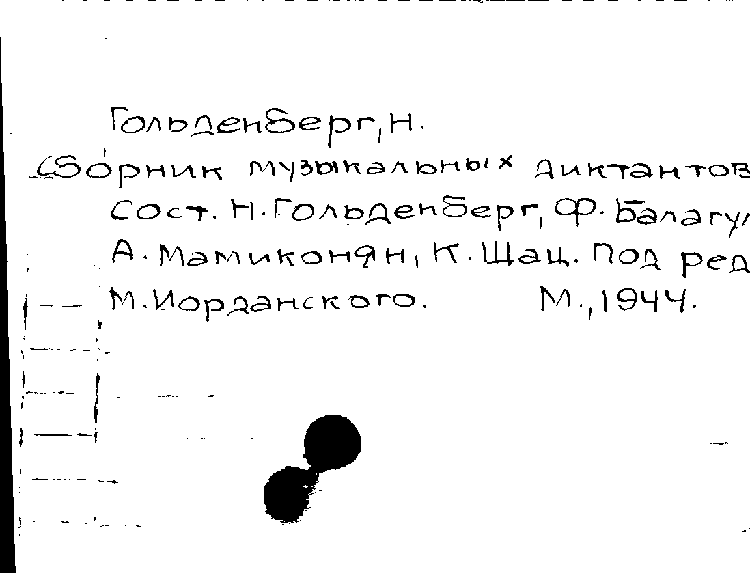 Гольденберг, Н.
Сборник музыкальных диктантов
Сост. Н. Гольденберг, Ф.
А. Мамиконян, К. Шац. Под ред
М. Иорданского. М., 1944.